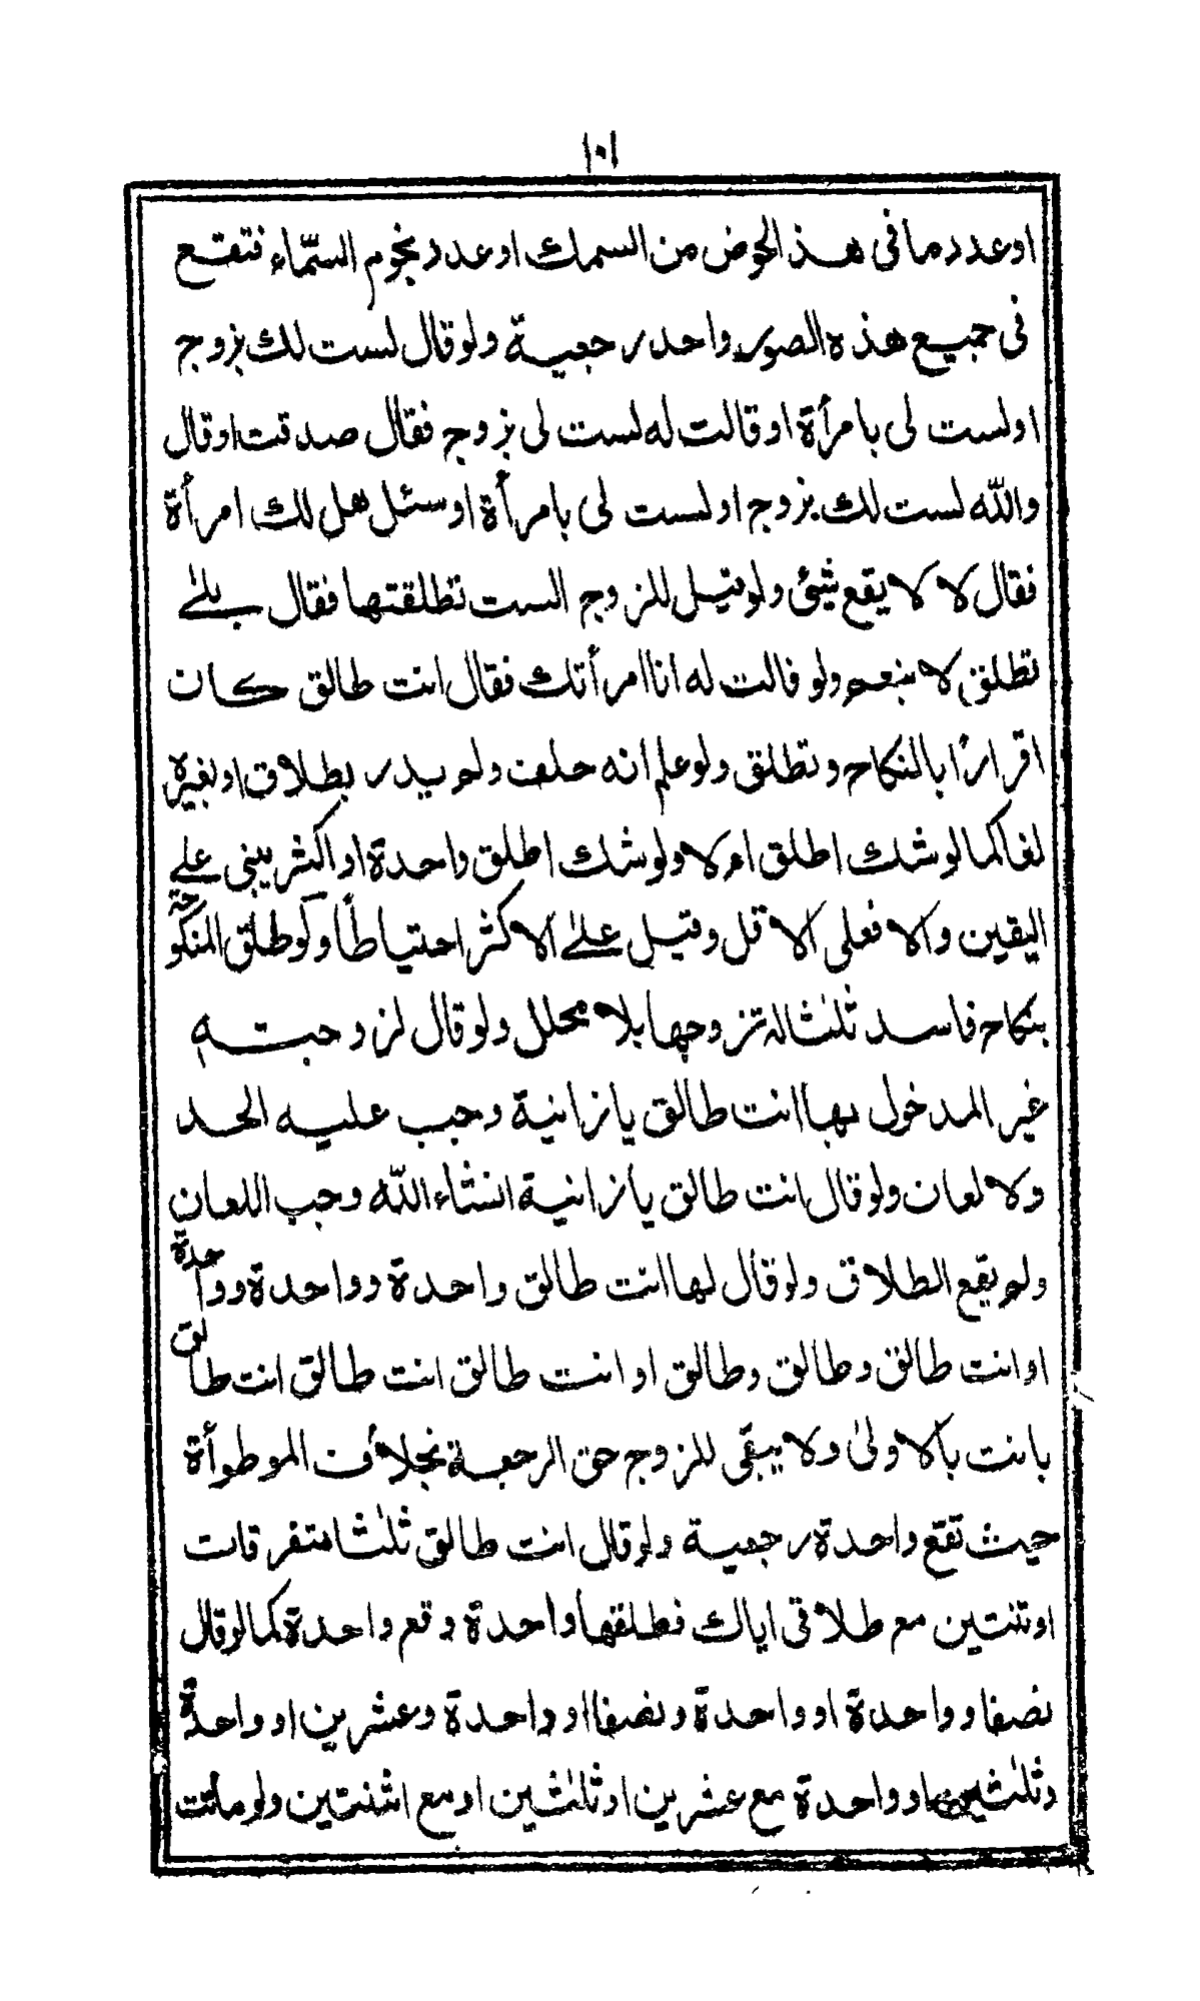 ١٠١
او عدد ما فى هذ الحوض من السمك او عدد نجوم السّماء فتقع
فى جميع هذه الصور واحد رجعية ولو قال لست لك بزوج
او لست لى بامرأة او قالت له لست لى بزوج فقال صدقت او قال
والله لست لك بزوج او لست لى بامرأة او سئل هل لك امرأة
فقال لا لا يقع شيئ ولو قيل للزوج الست تطلقتها فقال بلىٰ
تطلق لا بنعم ولو قالت له انا امرأتك فقال انت طالق كان
اقرارًا بالنكاح وتطلق ولو علم انه حلف ولم يدر بطلاق او بغيره
لغا كما لو شك اطلق ام لا ولو شك اطلق واحدة او اكثر يبنى على
اليقين والا فعلى الاقل وقيل علىٰ الاكثر احتياطًا ولو طلق المنكوحة
بنكاح فاسد ثلٰثا له تزوجها بلا محلل ولو قال لزوجته
غير المدخول بها انت طالق يا زانية وجب عليه الحد
ولا لعان ولو قال انت طالق يا زانية انشاء الله وجب اللعان
ولم يقع الطلاق ولو قال لها انت طالق واحدة وواحدة وواحدة
او انت طالق وطالق وطالق او انت طالق انت طالق انت طالق
بانت بالاولىٰ ولا يبقى للزوج حق الرجعية بخلاف الموطوأة
حيث تقع واحدة رجعية ولو قال انت طالق ثلٰثا متفرقات
او ثنتين مع طلاقى اياك فطلقها واحدة وقع واحدة كما لو قال
نصفا وواحدة او واحدة ونصفا او واحدة وعشرين او واحدة
وثلٰثين او واحدة مع عشرين او ثلٰثين او مع اثنتين ولو ماتت